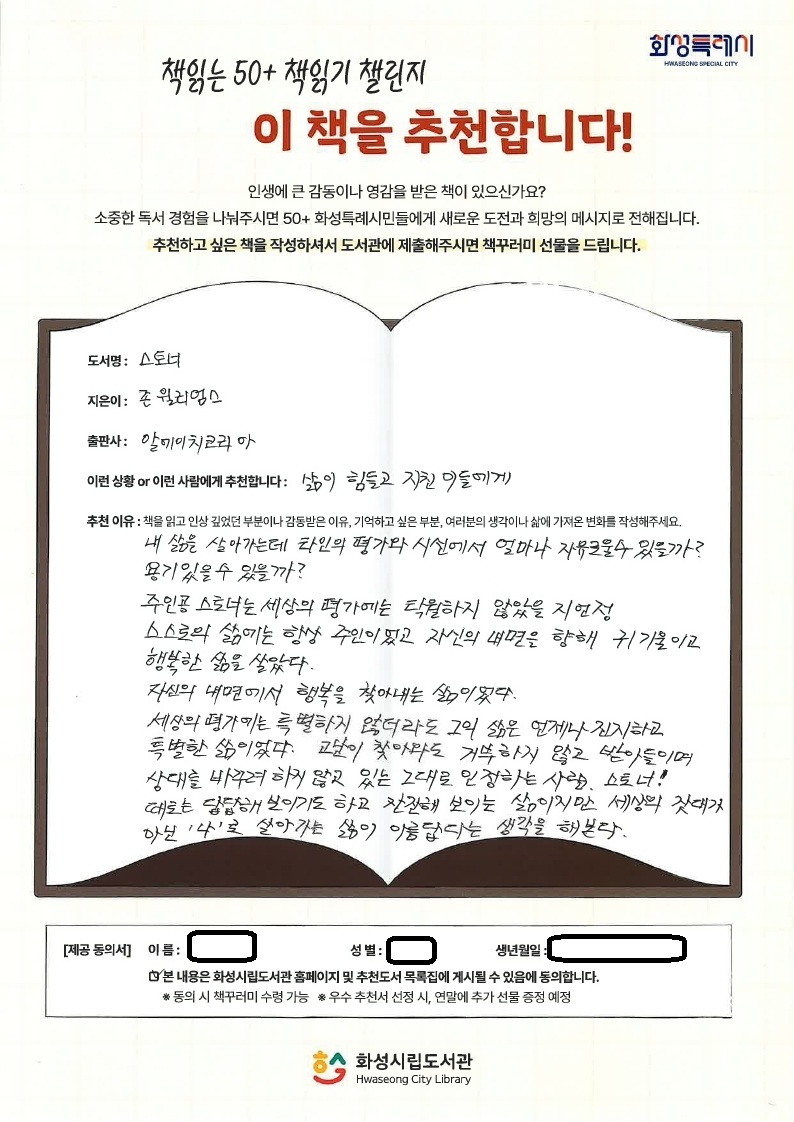 화성특례시
HWASEONG SPECIAL CITY
책읽는 50+ 책읽기 챌린지
이 책을 추천합니다!
인생에 큰 감동이나 영감을 받은 책이 있으신가요?
소중한 독서 경험을 나눠주시면 50+ 화성특례시민들에게 새로운 도전과 희망의 메시지로 전해집니다.
추천하고 싶은 책을 작성하셔서 도서관에 제출해주시면 책꾸러미 선물을 드립니다.
도서명 : 스토너
지은이 : 존 윌리엄스
출판사 : 알에이치코리아
이런 상황 or 이런 사람에게 추천합니다 : 삶이 힘들고 지친 이들에게
추천 이유 : 책을 읽고 인상 깊었던 부분이나 감동받은 이유, 기억하고 싶은 부분, 여러분의 생각이나 삶에 가져온 변화를 작성해주세요.
내 삶을 살아가는데 타인의 평가와 시선에서 얼마나 자유로울수 있을까?
용기있을 수 있을까?
주인공 스토너는 세상의 평가에는 탁월하지 않았을 지언정
스스로의 삶에는 항상 주인이었고 자신의 내면을 향해 귀 기울이고
행복한 삶을 살았다.
자신의 내면에서 행복을 찾아내는 삶이었다.
세상의 평가에는 특별하지 않더라도 그의 삶은 언제나 진지하고
특별한 삶이었다. 고난이 찾아와도 거부하지 않고 받아들이며
상대를 바꾸려 하지 않고 있는 그대로 인정하는 사람. 스토너!
때로는 답답해 보이기도 하고 잔잔해 보이는 삶이지만 세상의 잣대가
아닌 '나'로 살아가는 삶이 아름답다는 생각을 해본다.
[제공 동의서] 이 름 : 성 별 : 생년월일 :
본 내용은 화성시립도서관 홈페이지 및 추천도서 목록집에 게시될 수 있음에 동의합니다.
※ 동의 시 책꾸러미 수령 가능 ※ 우수 추천서 선정 시, 연말에 추가 선물 증정 예정
화성시립도서관
Hwaseong City Library